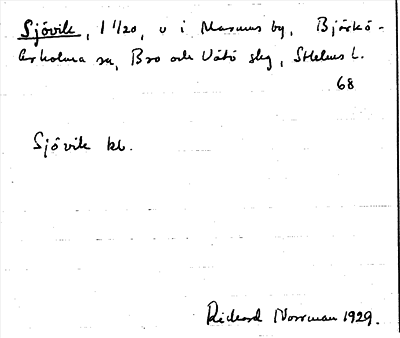 Sjövik, 1 1/20, u i Marums by, Björkö-
Arholma sn, Bro och Vätö skg, Sthlms l.
68
Sjövik kb.
Rickard Norrman 1929.